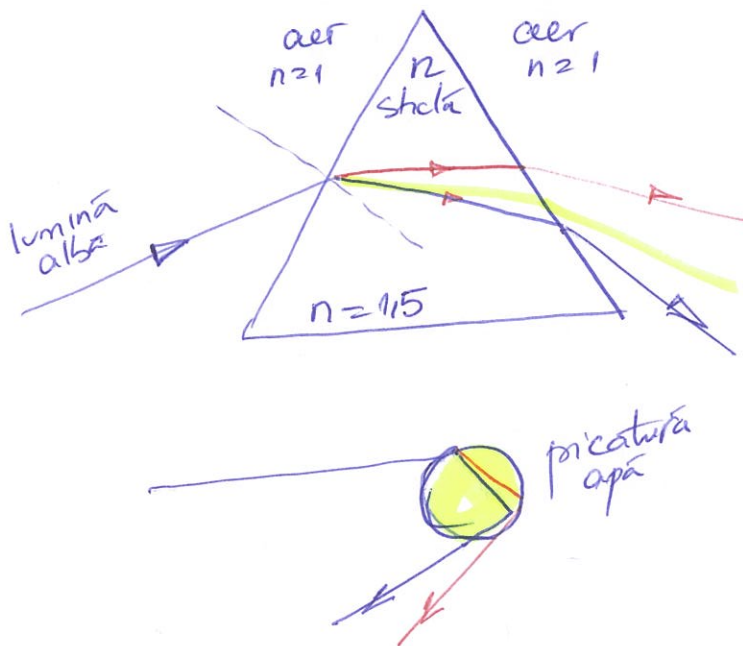 aer
n=1
n
sticlă
aer
n=1
lumină
albă
n=1,5
picatură
apă